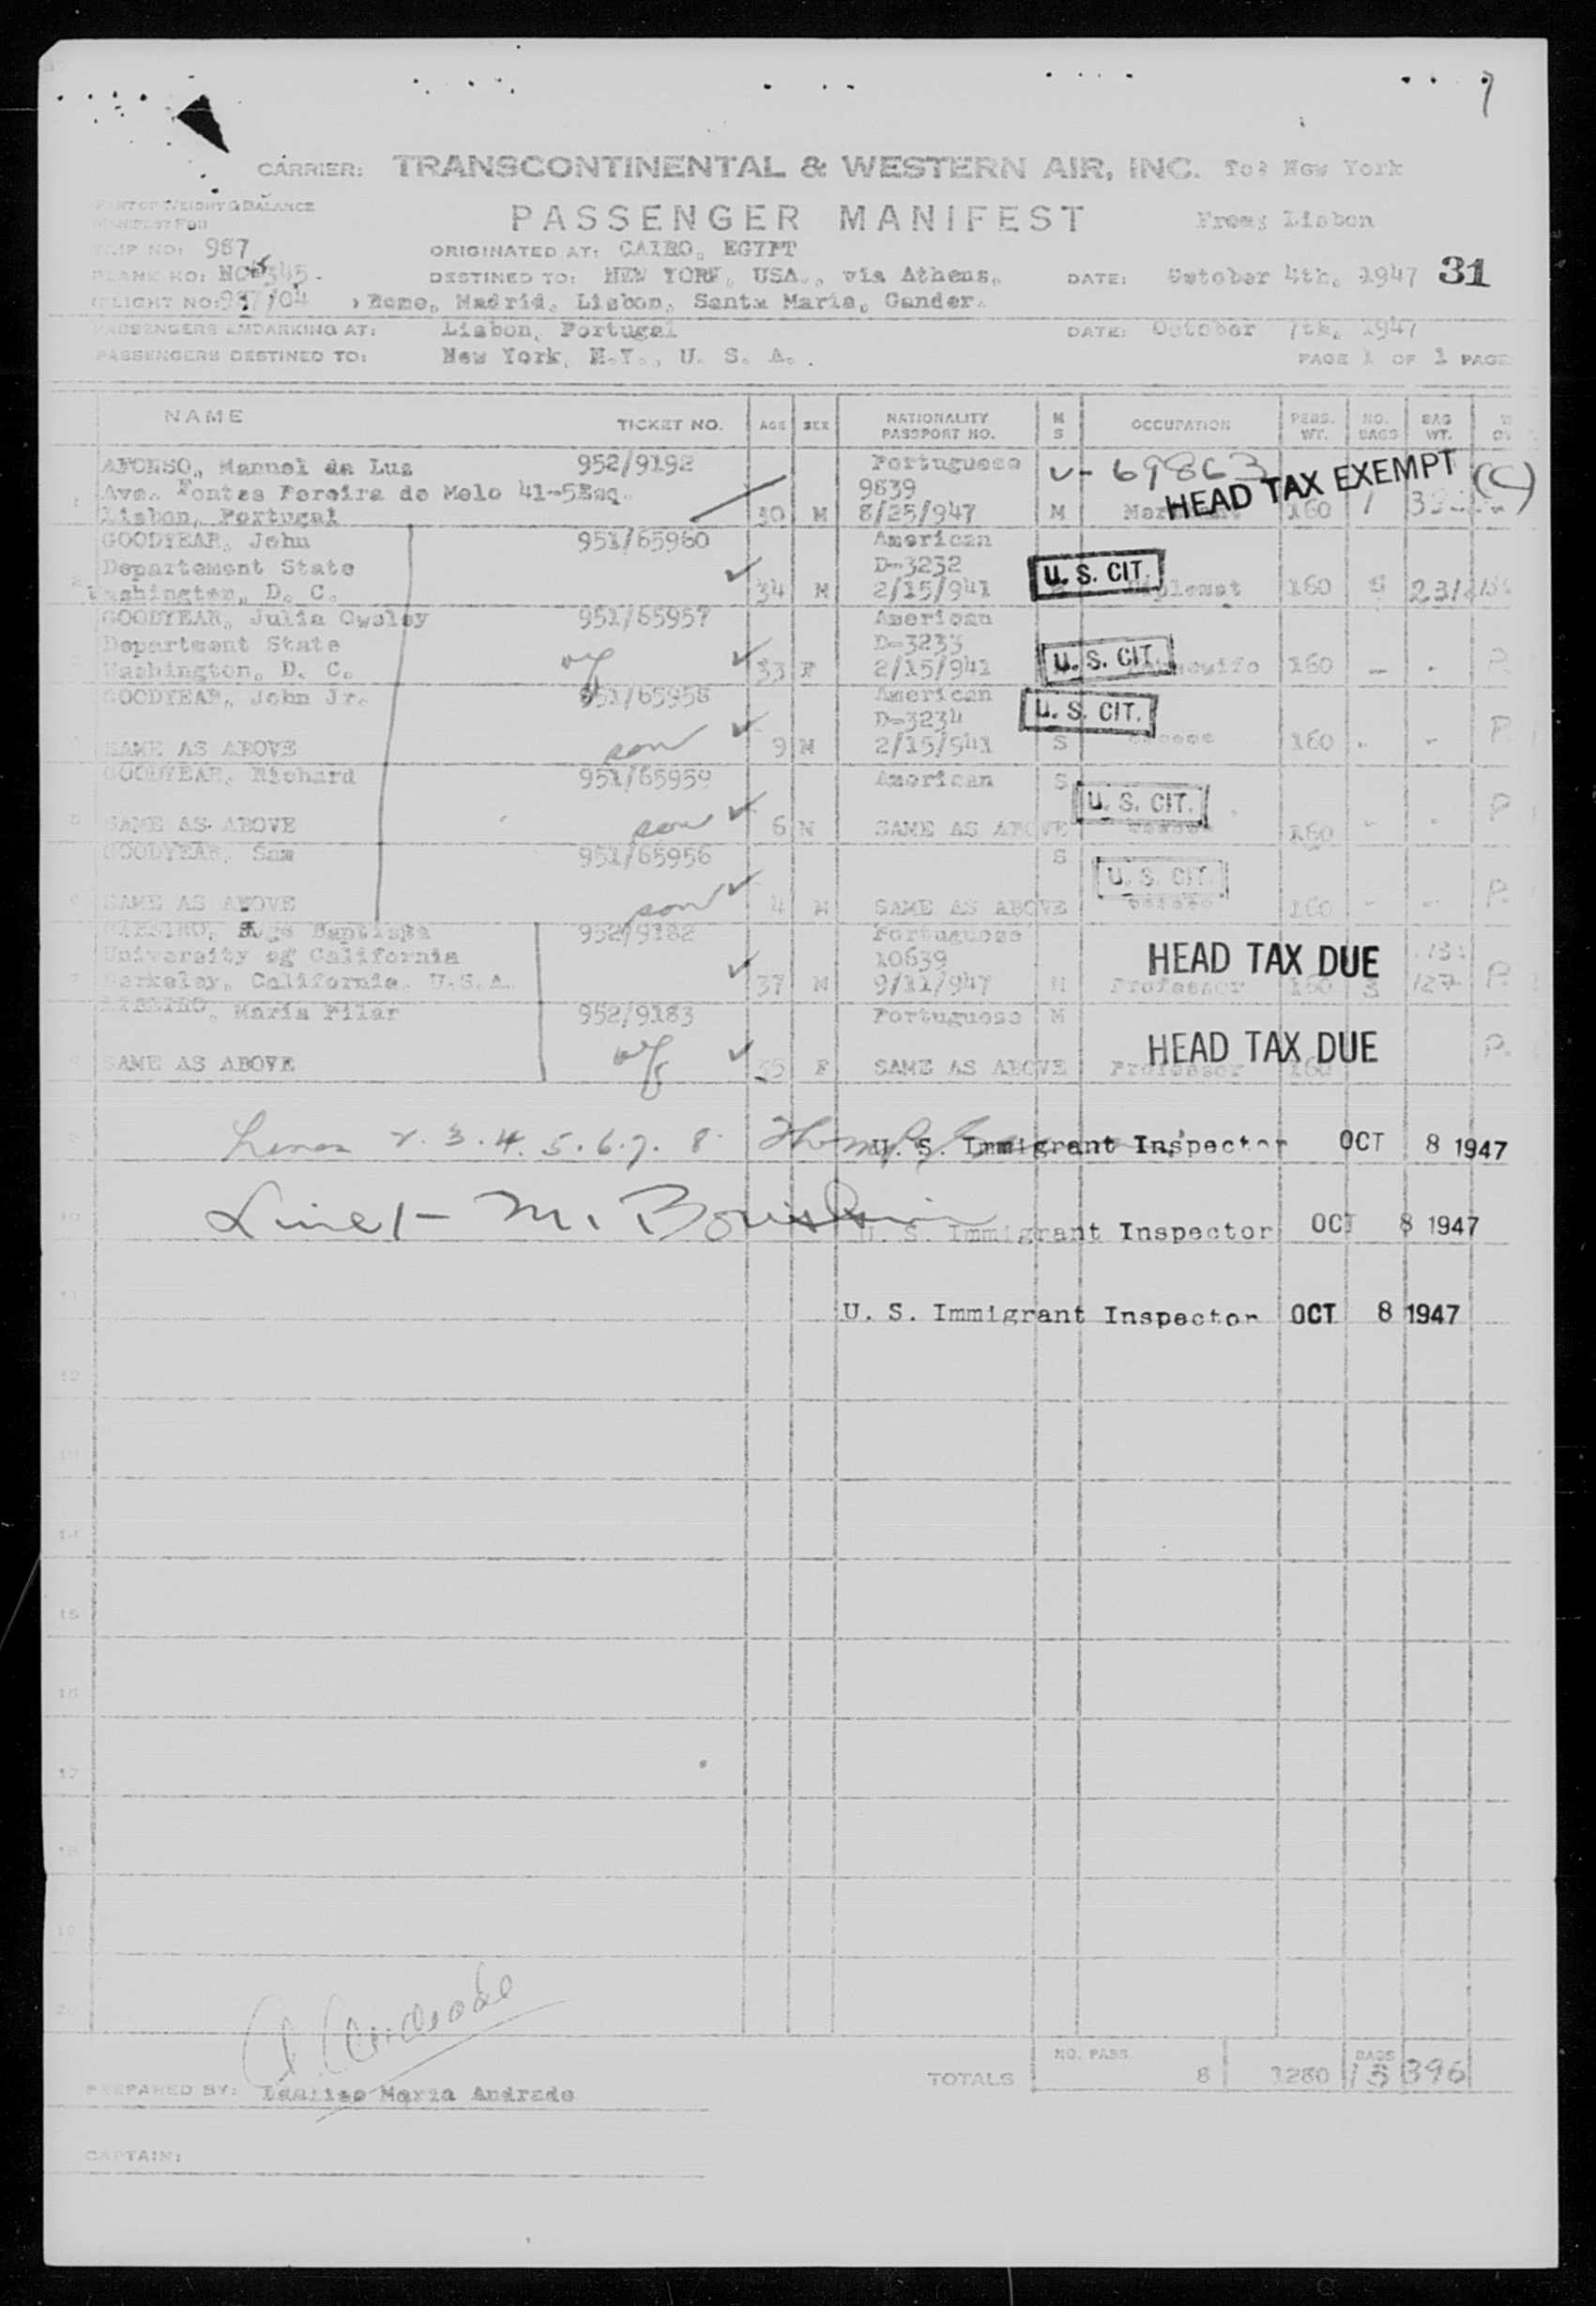 7
CARRIER: TRANSCONTINENTAL & WESTERN AIR, INC. To: New York
WEIGHT & BALANCE
MANIFEST FOR
PASSENGER MANIFEST From: Lisbon
TRIP NO: 987 ORIGINATED AT: CAIRO, EGYPT
PLANE NO: DESTINED TO: NEW YORK, USA., via Athens, DATE: October 4th, 1947 31
FLIGHT NO: 937/04 , Rome, Madrid, Lisbon, Santa Maria, Gander.
PASSENGERS EMBARKING AT: Lisbon, Portugal DATE: October 7th, 1947
PASSENGERS DESTINED TO: New York, N.Y., U. S. A. . PAGE 1 OF 1 PAGE
NAME TICKET NO. AGE SEX NATIONALITY PASSPORT NO. M S OCCUPATION PERS. WT. NO. BAGS BAG WT.
AFONSO, Manuel da Luz 952/9192 Portuguese V- 69863
Ave. Fontes Pereira de Melo 41-5Esq. 9839 HEAD TAX EXEMPT (C)
1 Lisbon, Portugal 30 M 8/25/947 M 160 1
GOODYEAR, John 951/65960 American
Departement State D-3232 U. S. CIT.
2 Washington, D. C. 34 M 2/15/941 Diplomat 160
GOODYEAR, Julia Owsley 951/65957 American
Department State D-3233
Washington, D. C. wf 33 F 2/15/941 U. S. CIT. Housewife 160 - - P.
GOODYEAR, John Jr. 951/65958 American
D-3234 U. S. CIT.
SAME AS ABOVE son 9 M 2/15/941 S 160 - - P.
GOODYEAR, Richard 951/65959 American S
U. S. CIT.
5 SAME AS ABOVE son 6 M SAME AS ABOVE 160 - - P
GOODYEAR, Sam 951/65956 S
U. S. CIT.
6 SAME AS ABOVE son 4 M SAME AS ABOVE 160 - - P.
RIBEIRO, Baptista 952/9182 Portuguese
University og California 10639 HEAD TAX DUE
7 Berkeley, California, U.S.A. 37 M 9/11/947 M Professor 160 3 127 P.
RIBEIRO, Maria Pilar 952/9183 Portuguese M
HEAD TAX DUE P.
SAME AS ABOVE wf 35 F SAME AS ABOVE Professor 160
9 Lines 2. 3. 4. 5. 6. 7. 8. U. S. Immigrant Inspector OCT 8 1947
10 Line 1- M. U. S. Immigrant Inspector OCT 8 1947
11 U. S. Immigrant Inspector OCT 8 1947
12
13
14
15
16
17
18
19
20
NO. PASS. BAGS
TOTALS 8 1280 15 396
PREPARED BY: Maria Andrade
CAPTAIN: